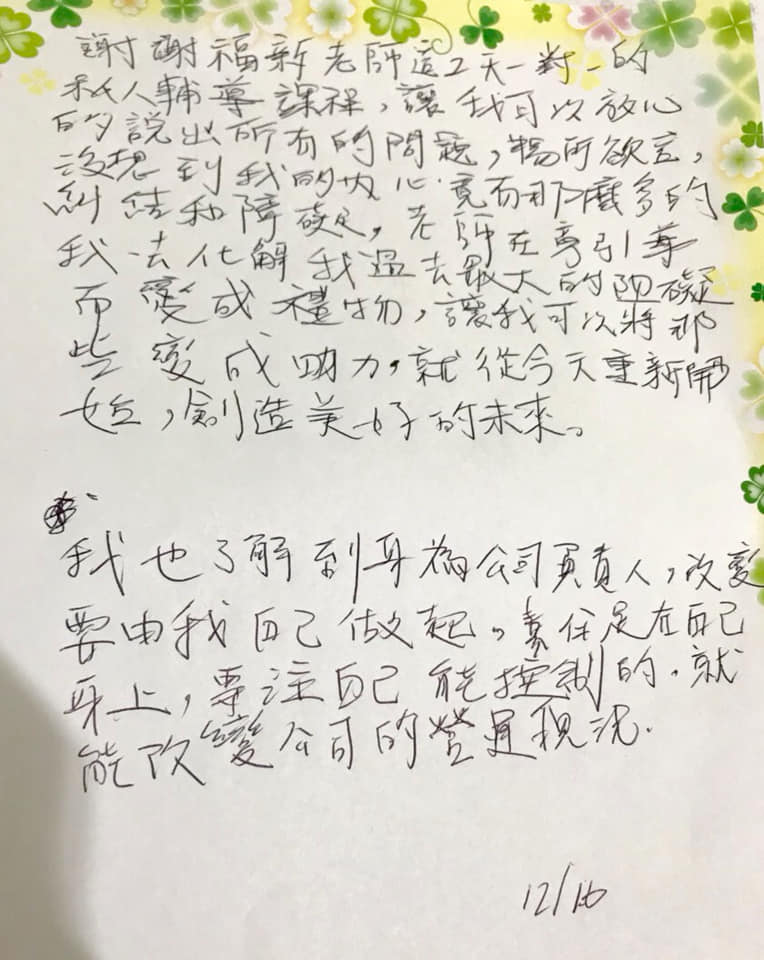 謝謝福新老師這2天一對一的
私人輔導課程，讓我可以放心
的說出所有的問題，暢所欲言，
沒想到我的內心竟而那麼多的
糾結和障礙，老師在旁引導
我去化解我過去最大的阻礙
而變成禮物，讓我可以將那
些變成助力，就從今天重新開
始，創造美好的未來。
我也了解到身為公司負責人，改變
要由我自己做起。責任是在自己
身上，專注自己能控制的，就
能改變公司的營運現況．
12/16